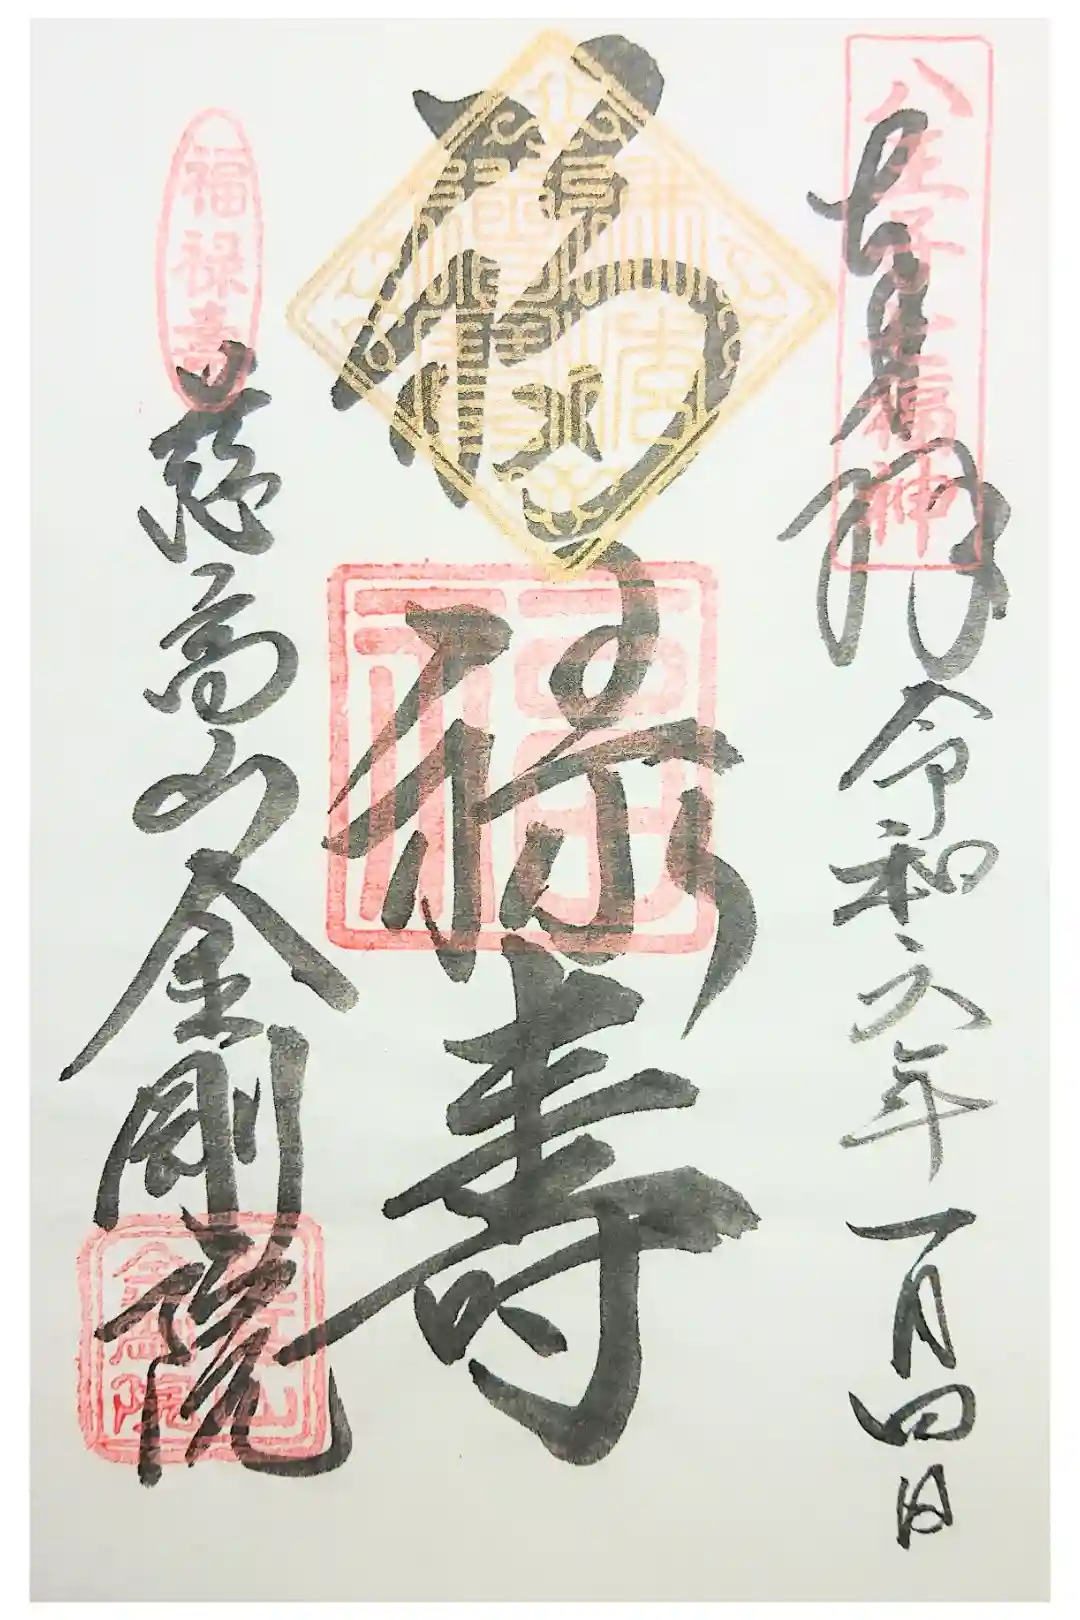 八王子七福神
奉拝
令和六年一月四日
福禄寿
福
福禄寿
慈高山金剛院
金剛院